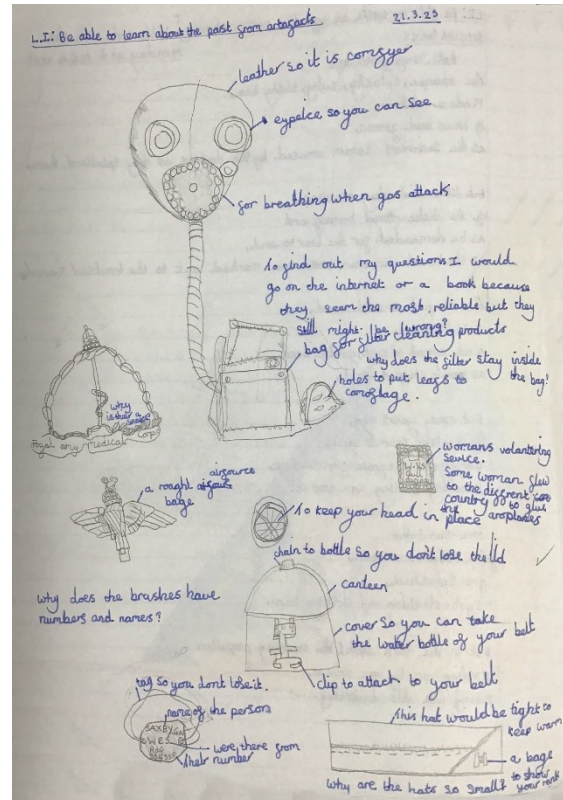 L.I: Be able to learn about the past from artafacts
21.3.23
leather so it is comfyer
eypeice so you can see
for breathing when gas attack
To find out my questions I would
go on the internet or a book because
they seam the most reliable but they
still might be wrong?
bag for filter cleaning products
why does the filter stay inside
the bag?
holes to put leafs to
camoflage.
why
is ther a
snake
Royal army medical corps
womans volantering
sevice.
Some woman flew
to the diffrent
country to give
the aroplanes
airforce
a roaght
bage
To keep your head in place
chain to bottle so you don't lose the lid
canteen
why does the brushes have
numbers and names?
cover so you can take
the water bottle of your belt
clip to attach to your belt
tag so you dont lose it.
name of the person
SAXBY
were there from
Their number
This hat would be tight to
keep warm
a bage
to show
your rank
why are the hats so small?